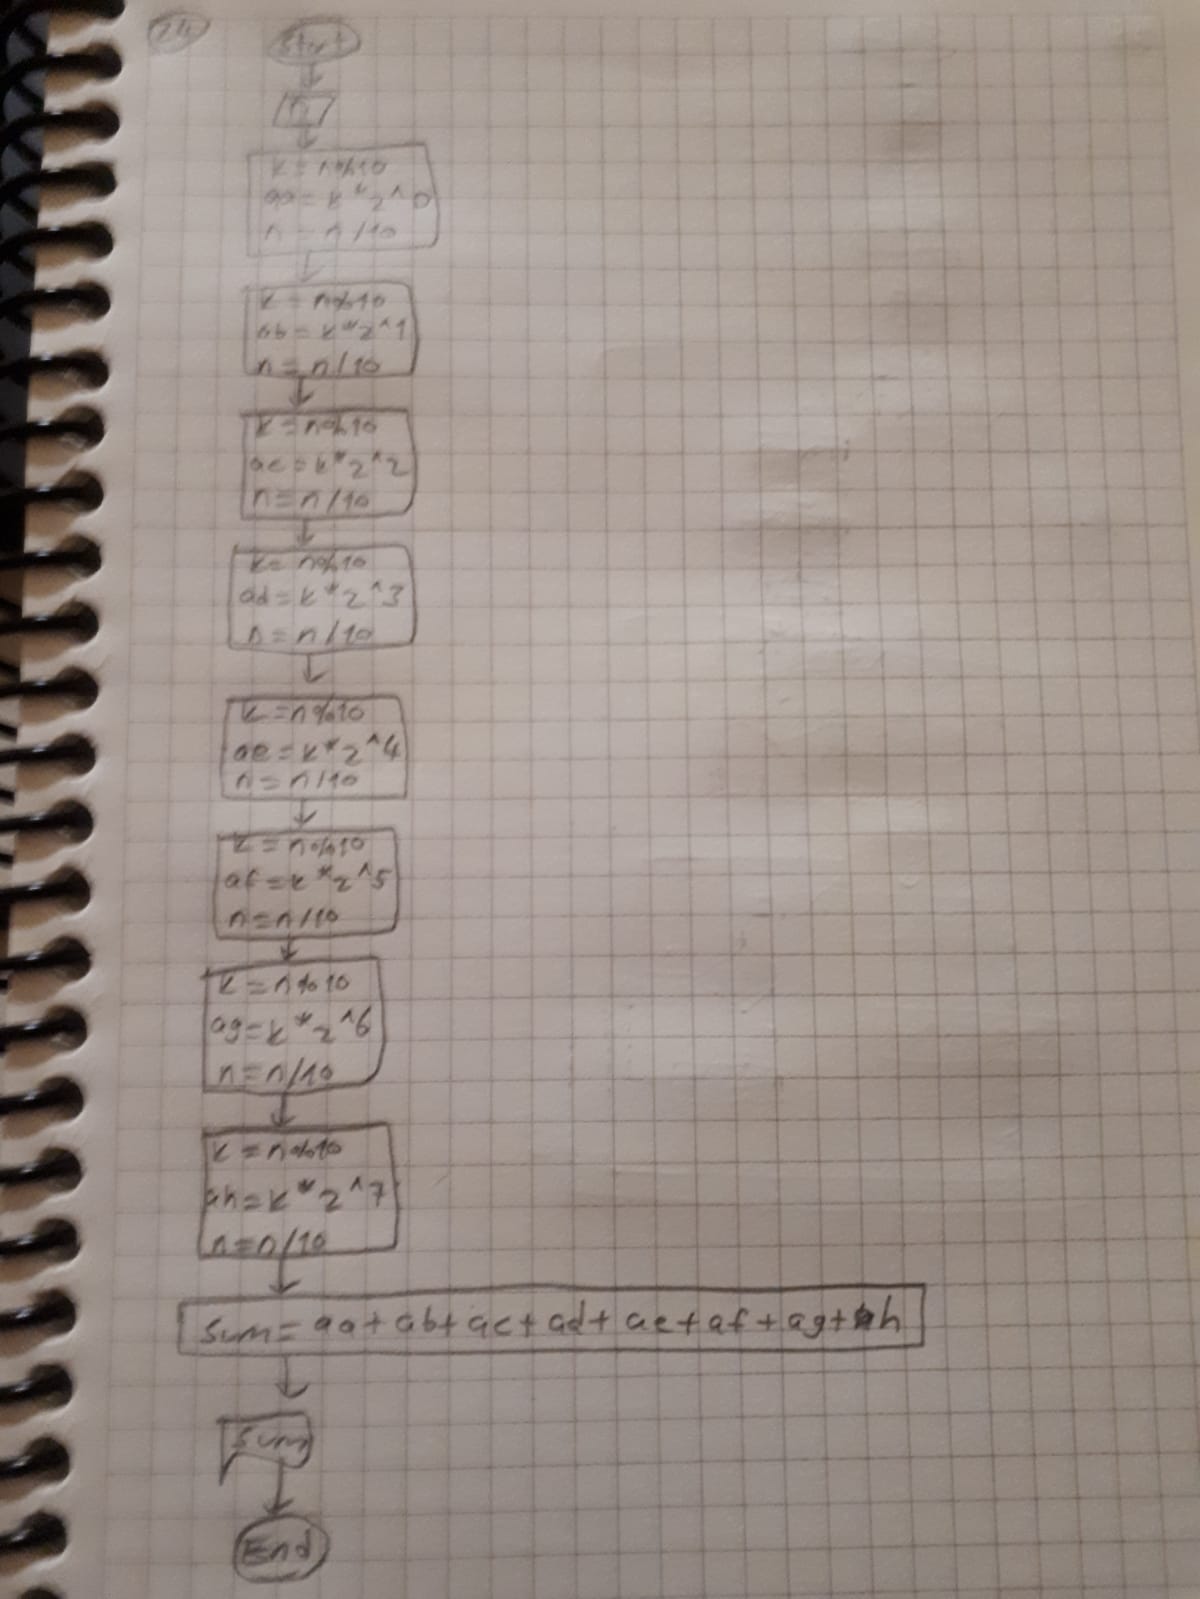 24
Start
n
k = n%10
aa = k*2^0
n = n/10
k = n%10
ab = k*2^1
n = n/10
k = n%10
ac = k*2^2
n = n/10
k = n%10
ad = k*2^3
n = n/10
k = n%10
ae = k*2^4
n = n/10
k = n%10
af = k*2^5
n = n/10
k = n%10
ag = k*2^6
n = n/10
k = n%10
ah = k*2^7
n = n/10
Sum = aa + ab + ac + ad + ae + af + ag + ah
Sum
End